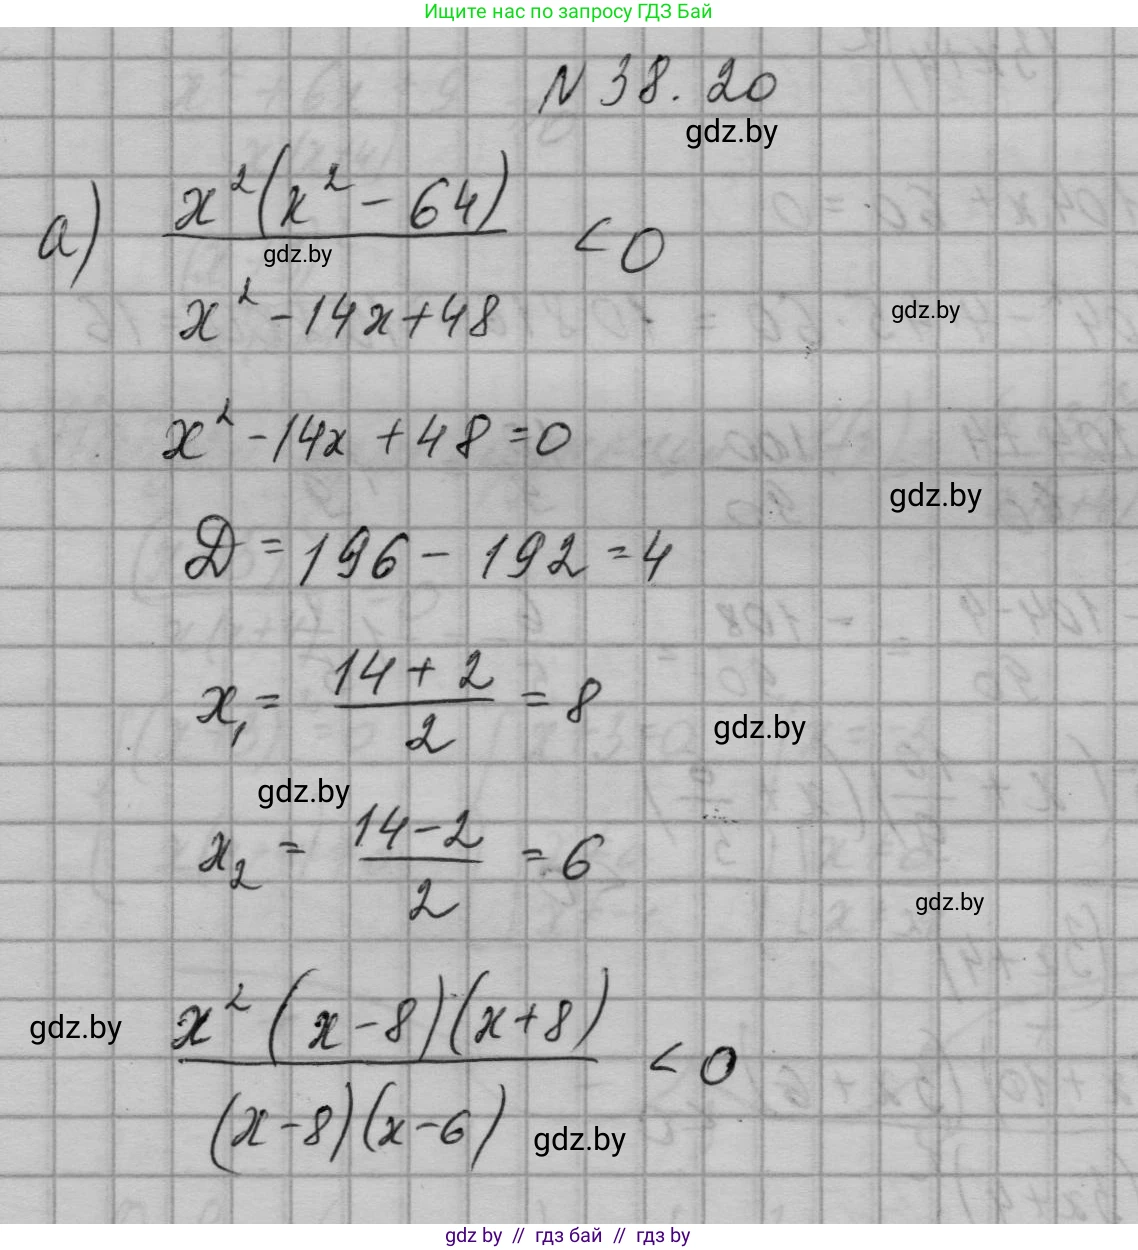 Ищите нас по запросу ГДЗ Бай
N 38.20
gdz.by
а) x²(x² - 64) / x² - 14x + 48 < 0
gdz.by
gdz.by
x² - 14x + 48 = 0
gdz.by
Д = 196 - 192 = 4
x₁ = 14 + 2 / 2 = 8
gdz.by
gdz.by
x₂ = 14 - 2 / 2 = 6
gdz.by
gdz.by
x² (x - 8)(x + 8) / (x - 8)(x - 6) < 0
gdz.by
gdz by // гдз бай // гдз by